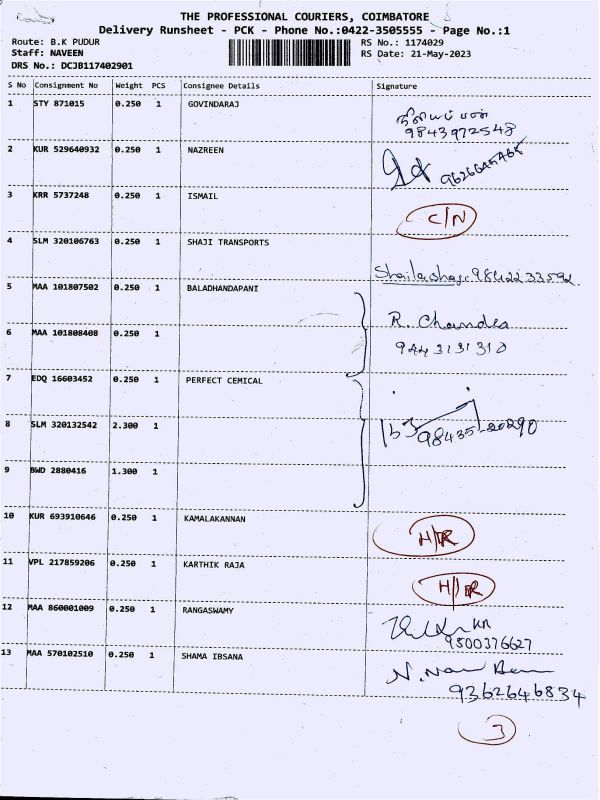 THE PROFESSIONAL COURIERS, COIMBATORE
Delivery Runsheet - PCK - Phone No.:0422-3505555 - Page No.:1
Route: B.K PUDUR RS No.: 1174029
Staff: NAVEEN RS Date: 21-May-2023
DRS No.: DCJB117402901
S No Consignment No Weight PCS Consignee Details Signature
1 STY 871015 0.250 1 GOVINDARAJ
9843972548
2 KUR 529640932 0.250 1 NAZREEN
3 KRR 5737248 0.250 1 ISMAIL
C/N
4 SLM 320106763 0.250 1 SHAJI TRANSPORTS
9842233592
5 MAA 101807502 0.250 1 BALADHANDAPANI
R. Chandra
6 MAA 101808408 0.250 1
9443131310
7 EDQ 16603452 0.250 1 PERFECT CEMICAL
8 SLM 320132542 2.300 1
98435-20290
9 BWD 2880416 1.300 1
10 KUR 693910646 0.250 1 KAMALAKANNAN
11 VPL 217859206 0.250 1 KARTHIK RAJA
12 MAA 860001009 0.250 1 RANGASWAMY
9500376627
13 MAA 570102510 0.250 1 SHAMA IBSANA
9362646834
3